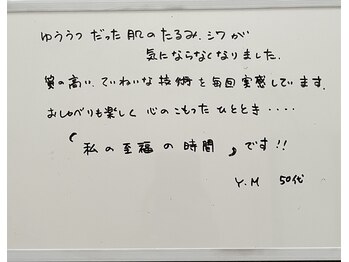 ゆううつ だった 肌の たるみ、シワが
気にならなくなりました.
質の高い、ていねいな 技術を毎回 実感しています.
おしゃべりも楽しく 心のこもった ひととき・・・・
「私の至福の時間」です!!
Y.M 50代